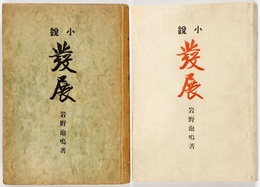 小説
發展
岩野泡鳴著
小説
發展
岩野泡鳴著